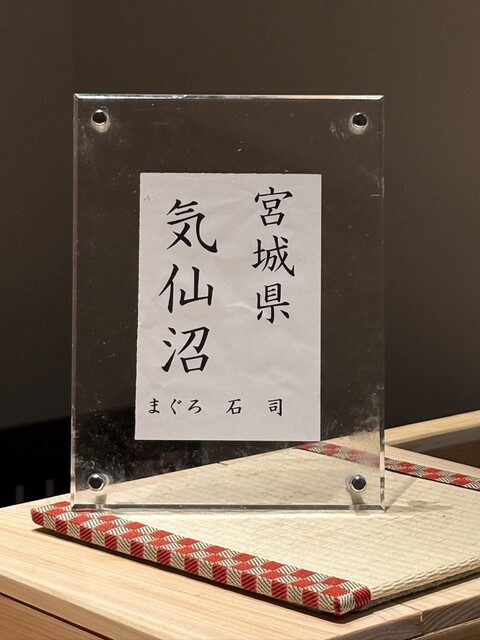 宮城県
気仙沼
まぐろ 石 司